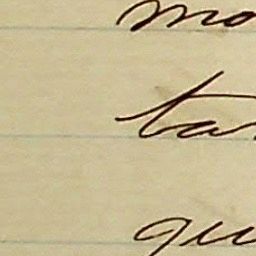 mo
tar
qu